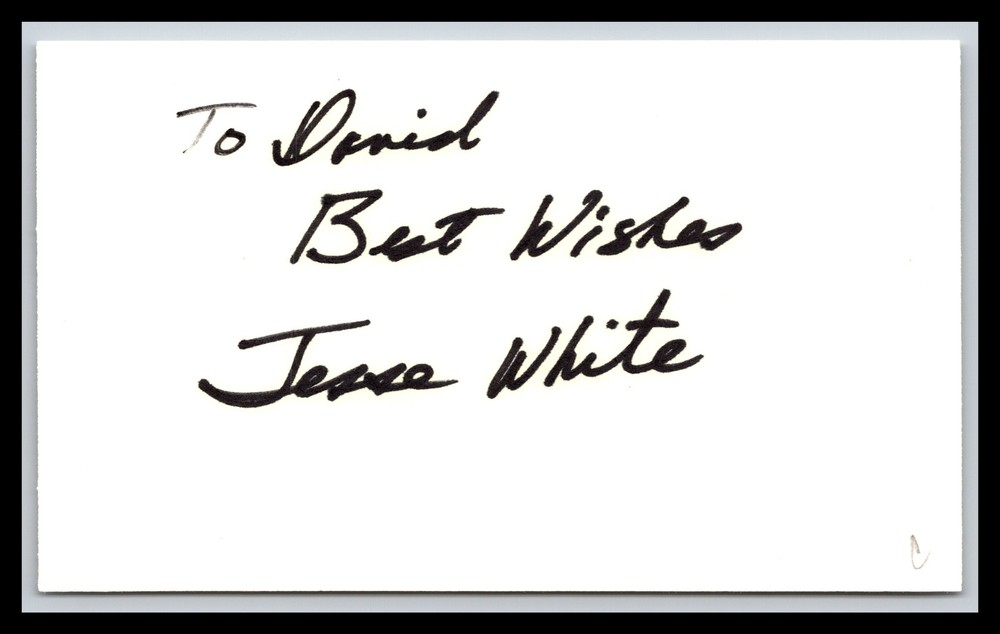 To David
Best Wishes
Jesse White
C